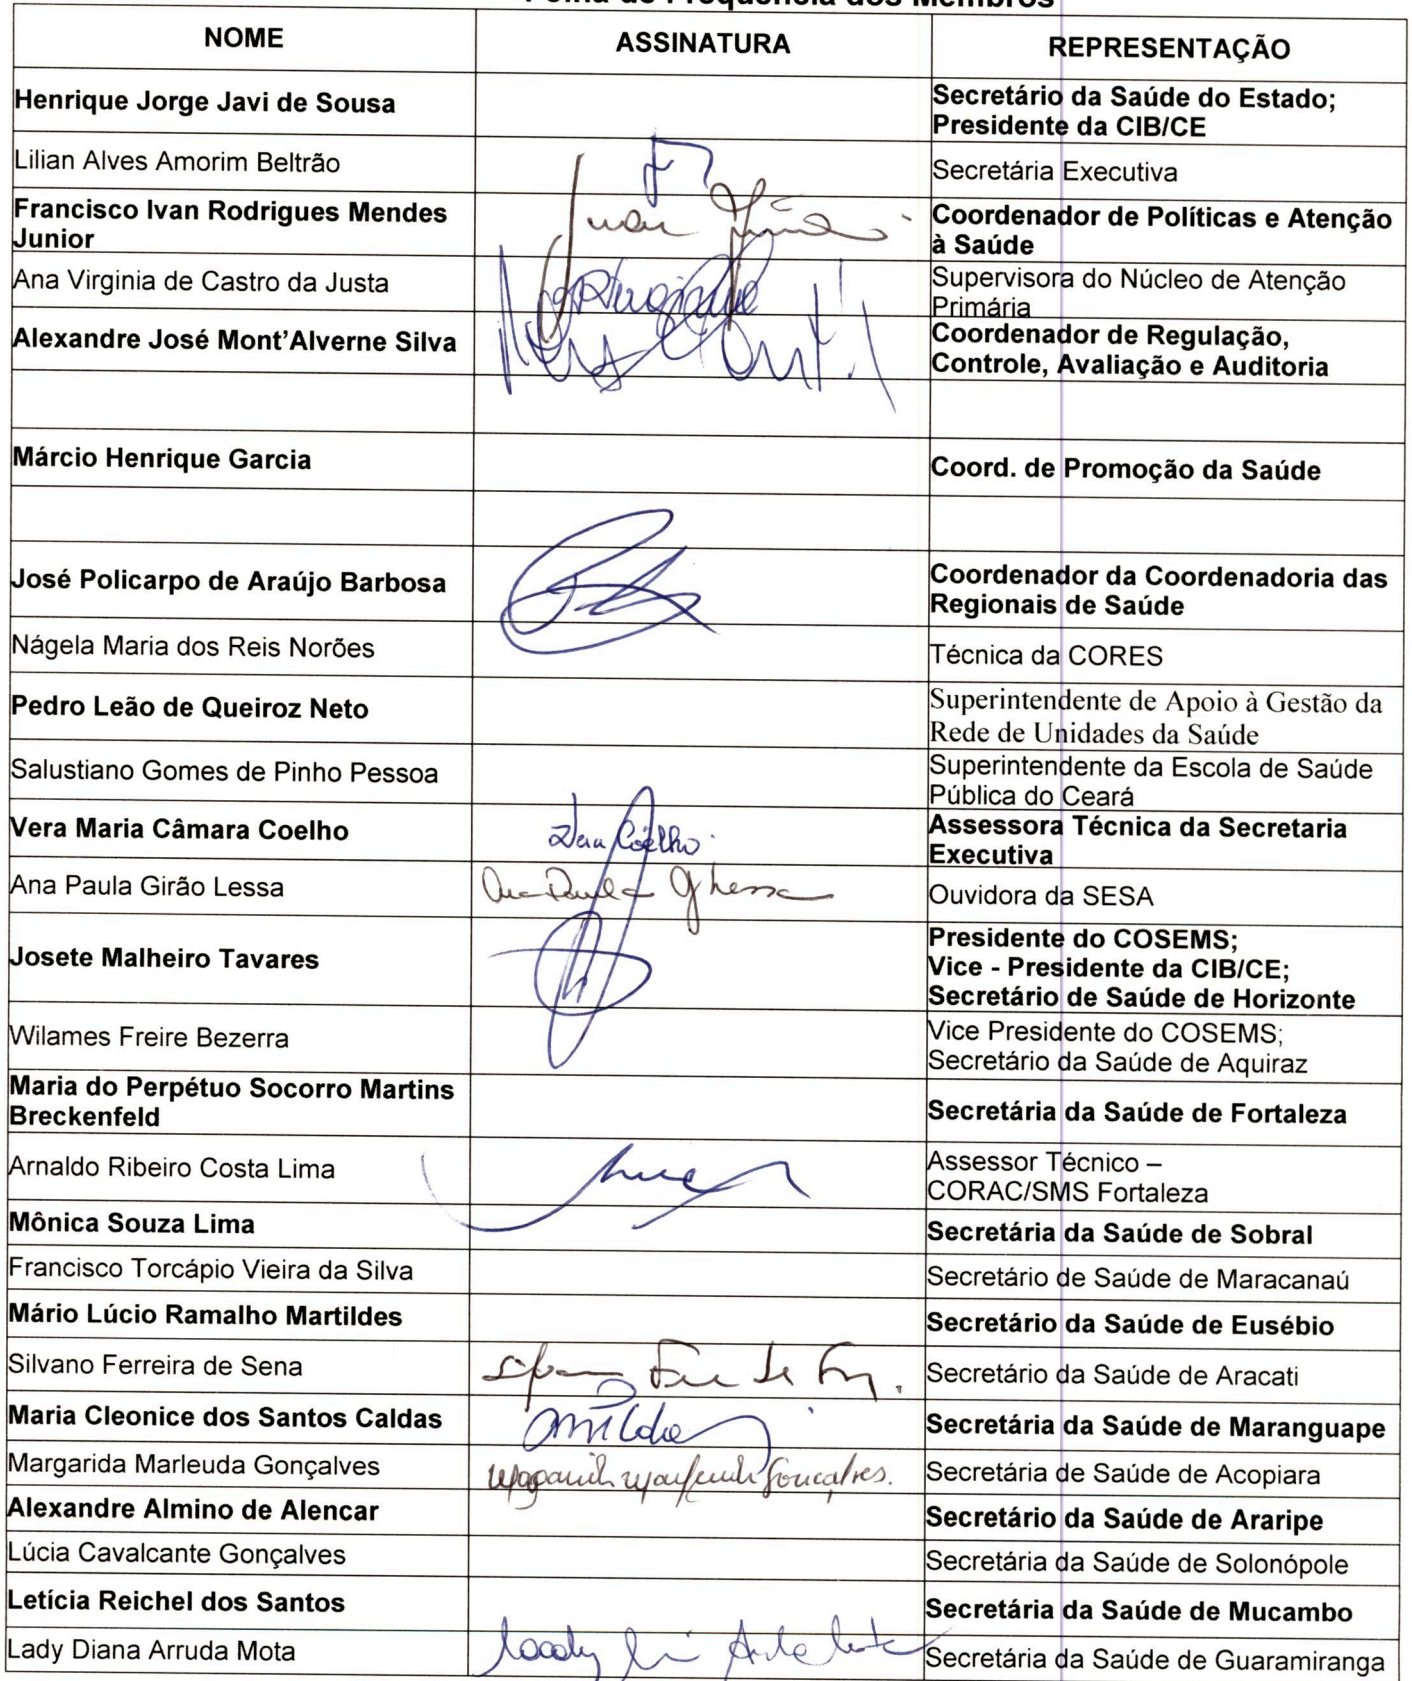 Folha de Frequência dos Membros
NOME ASSINATURA REPRESENTAÇÃO
Henrique Jorge Javi de Sousa Secretário da Saúde do Estado;
Presidente da CIB/CE
Lilian Alves Amorim Beltrão Secretária Executiva
Francisco Ivan Rodrigues Mendes Coordenador de Políticas e Atenção
Junior à Saúde
Ana Virginia de Castro da Justa Supervisora do Núcleo de Atenção
Primária
Alexandre José Mont’Alverne Silva Coordenador de Regulação,
Controle, Avaliação e Auditoria
Márcio Henrique Garcia Coord. de Promoção da Saúde
José Policarpo de Araújo Barbosa Coordenador da Coordenadoria das
Regionais de Saúde
Nágela Maria dos Reis Norões Técnica da CORES
Pedro Leão de Queiroz Neto Superintendente de Apoio à Gestão da
Rede de Unidades da Saúde
Salustiano Gomes de Pinho Pessoa Superintendente da Escola de Saúde
Pública do Ceará
Vera Maria Câmara Coelho Vera Coelho Assessora Técnica da Secretaria
Executiva
Ana Paula Girão Lessa Ana Paula G Lessa Ouvidora da SESA
Josete Malheiro Tavares Presidente do COSEMS;
Vice - Presidente da CIB/CE;
Secretário de Saúde de Horizonte
Wilames Freire Bezerra Vice Presidente do COSEMS;
Secretário da Saúde de Aquiraz
Maria do Perpétuo Socorro Martins Secretária da Saúde de Fortaleza
Breckenfeld
Arnaldo Ribeiro Costa Lima Assessor Técnico –
CORAC/SMS Fortaleza
Mônica Souza Lima Secretária da Saúde de Sobral
Francisco Torcápio Vieira da Silva Secretário de Saúde de Maracanaú
Mário Lúcio Ramalho Martildes Secretário da Saúde de Eusébio
Silvano Ferreira de Sena Secretário da Saúde de Aracati
Maria Cleonice dos Santos Caldas Secretária da Saúde de Maranguape
Margarida Marleuda Gonçalves Margarida Marleuda Gonçalves. Secretária de Saúde de Acopiara
Alexandre Almino de Alencar Secretário da Saúde de Araripe
Lúcia Cavalcante Gonçalves Secretária da Saúde de Solonópole
Letícia Reichel dos Santos Secretária da Saúde de Mucambo
Lady Diana Arruda Mota Secretária da Saúde de Guaramiranga